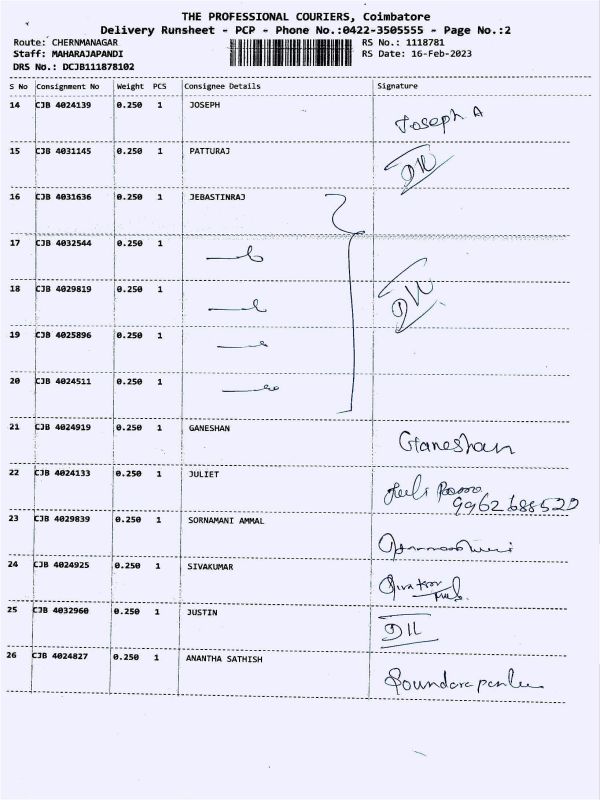 THE PROFESSIONAL COURIERS, Coimbatore
Delivery Runsheet - PCP - Phone No.:0422-3505555 - Page No.:2
Route: CHERNMANAGAR RS No.: 1118781
Staff: MAHARAJAPANDI RS Date: 16-Feb-2023
DRS No.: DCJB111878102
S No Consignment No Weight PCS Consignee Details Signature
14 CJB 4024139 0.250 1 JOSEPH Joseph A
15 CJB 4031145 0.250 1 PATTURAJ
16 CJB 4031636 0.250 1 JEBASTINRAJ
17 CJB 4032544 0.250 1
18 CJB 4029819 0.250 1
19 CJB 4025896 0.250 1
20 CJB 4024511 0.250 1
21 CJB 4024919 0.250 1 GANESHAN Ganeshan
22 CJB 4024133 0.250 1 JULIET
9962688529
23 CJB 4029839 0.250 1 SORNAMANI AMMAL
24 CJB 4024925 0.250 1 SIVAKUMAR
25 CJB 4032960 0.250 1 JUSTIN
26 CJB 4024827 0.250 1 ANANTHA SATHISH